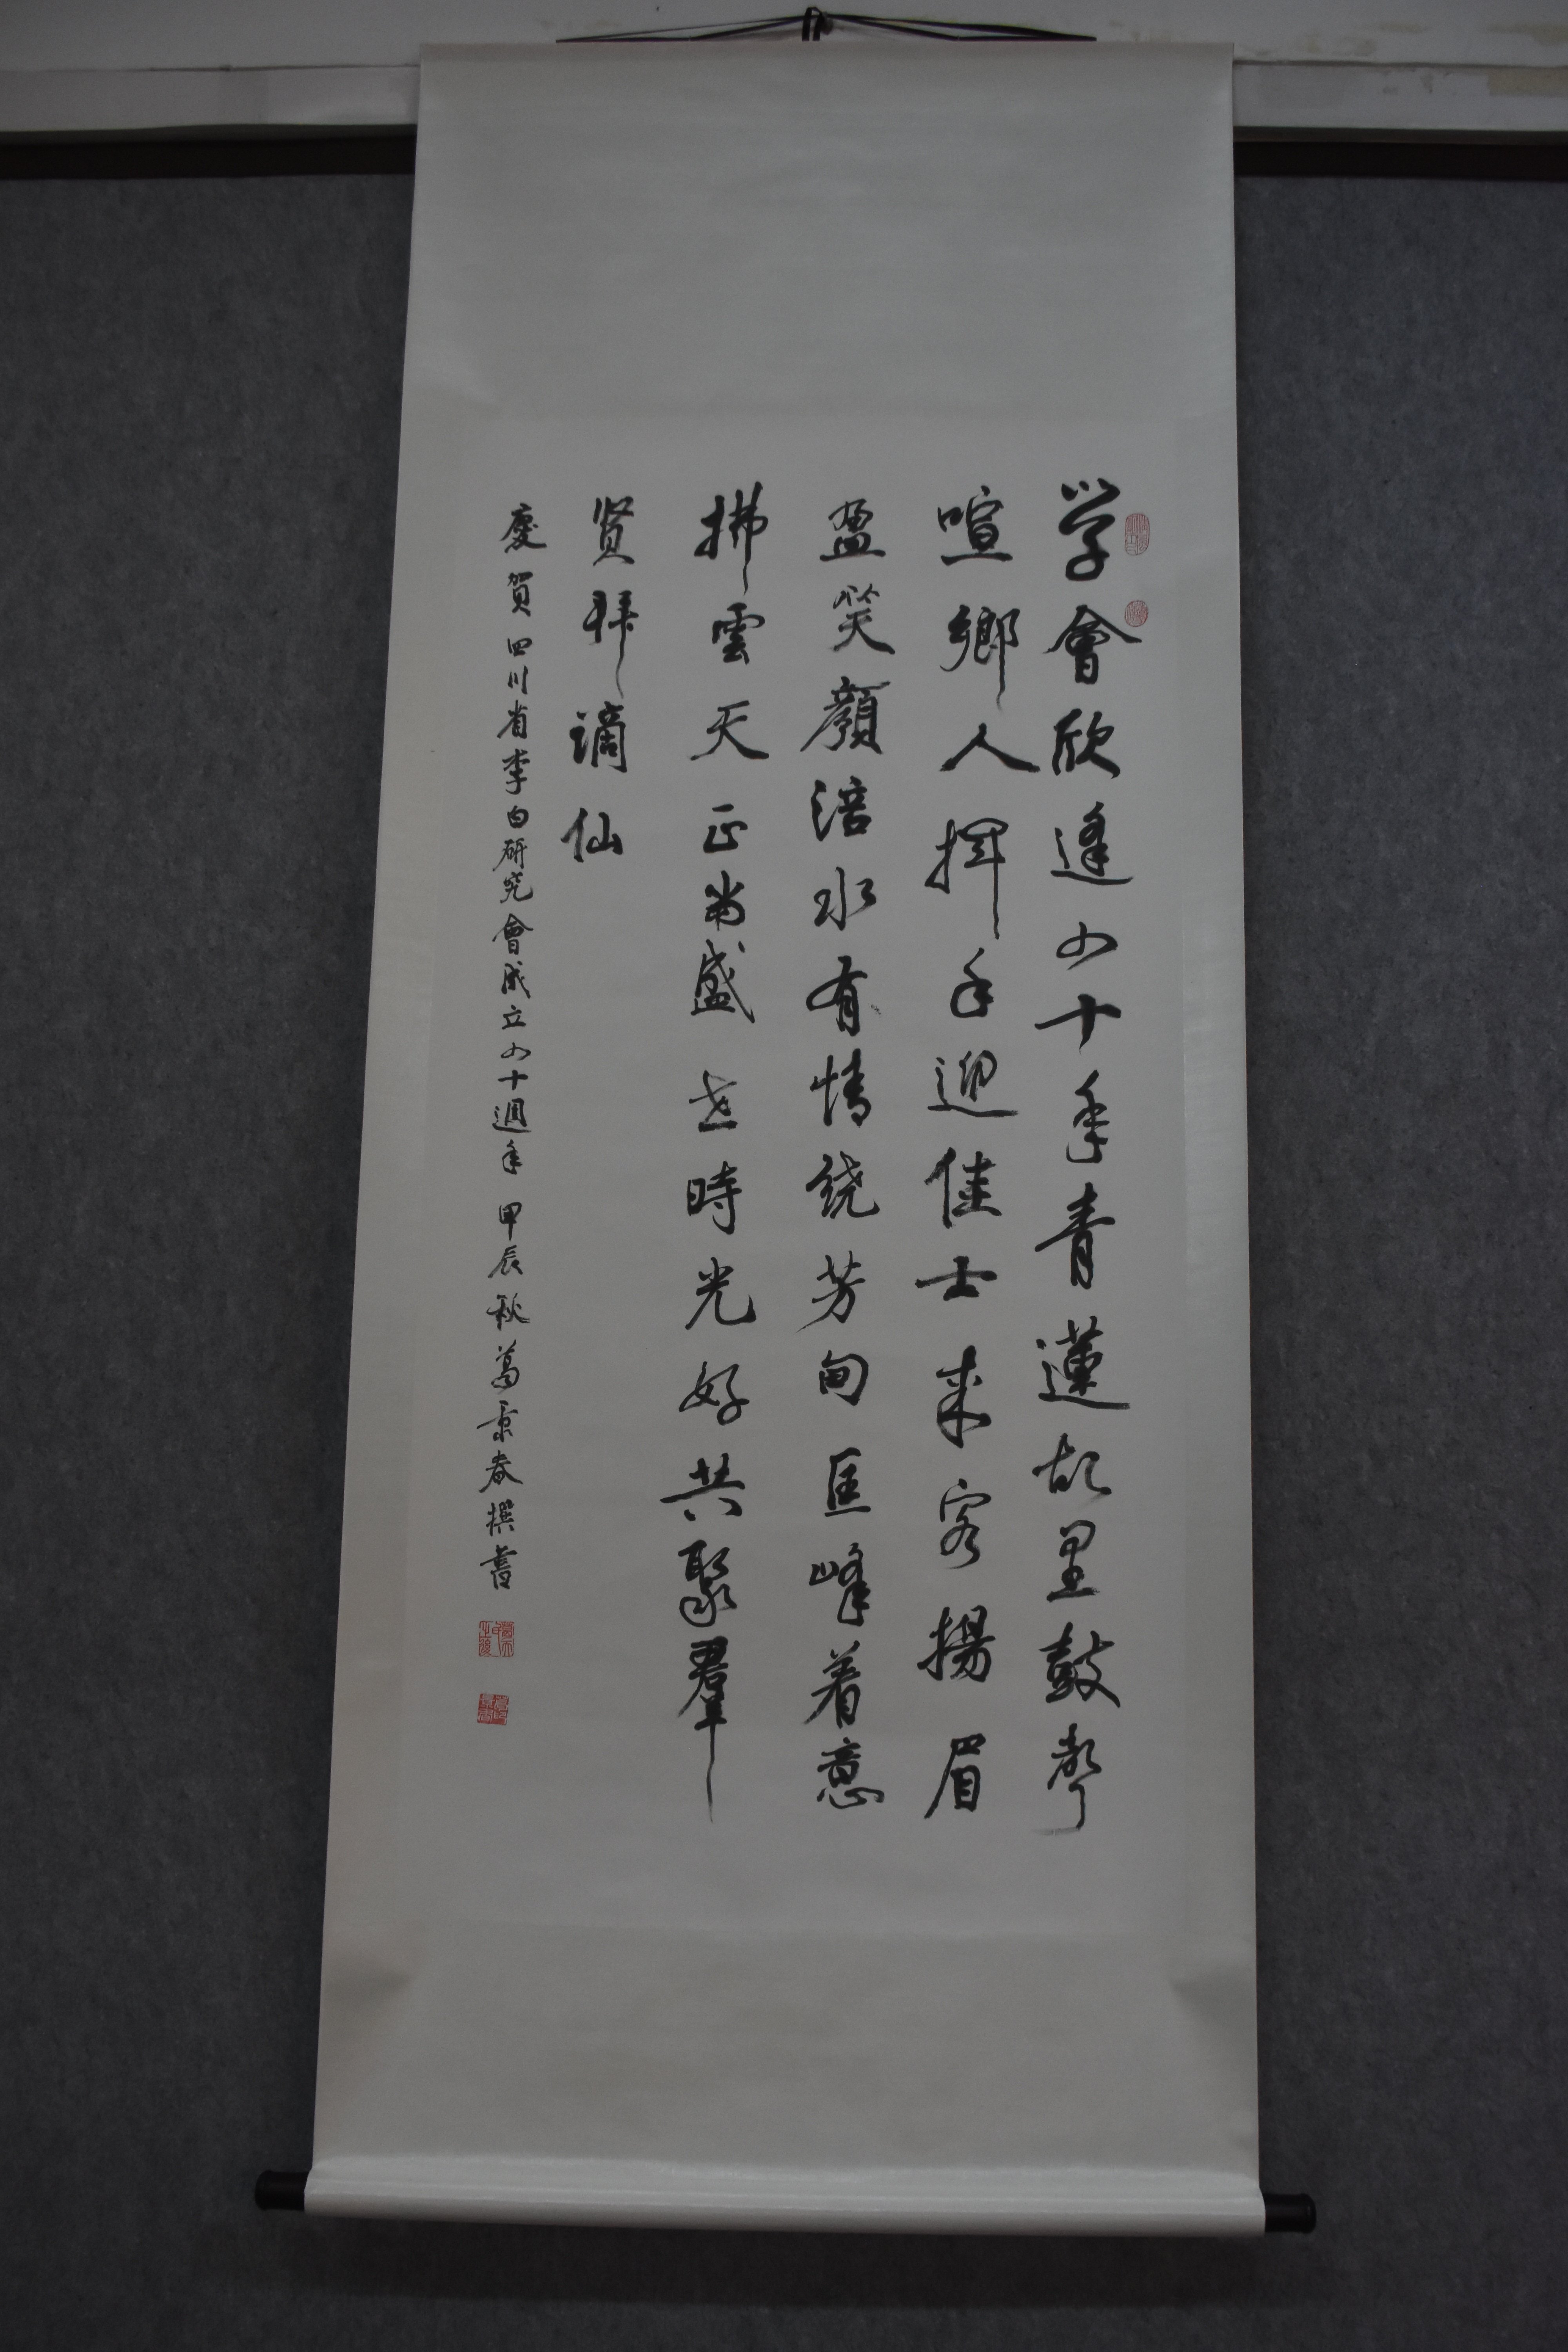 学會欣逢四十年青蓮故里鼓聲
喧鄉人揮手迎佳士來客揚眉
盈笑顏涪水有情绕芳甸匡峰着意
拂雲天正當盛世時光好共聚羣
贤拜謫仙
慶賀四川省李白研究會成立四十週年 甲辰秋 葛景春撰書